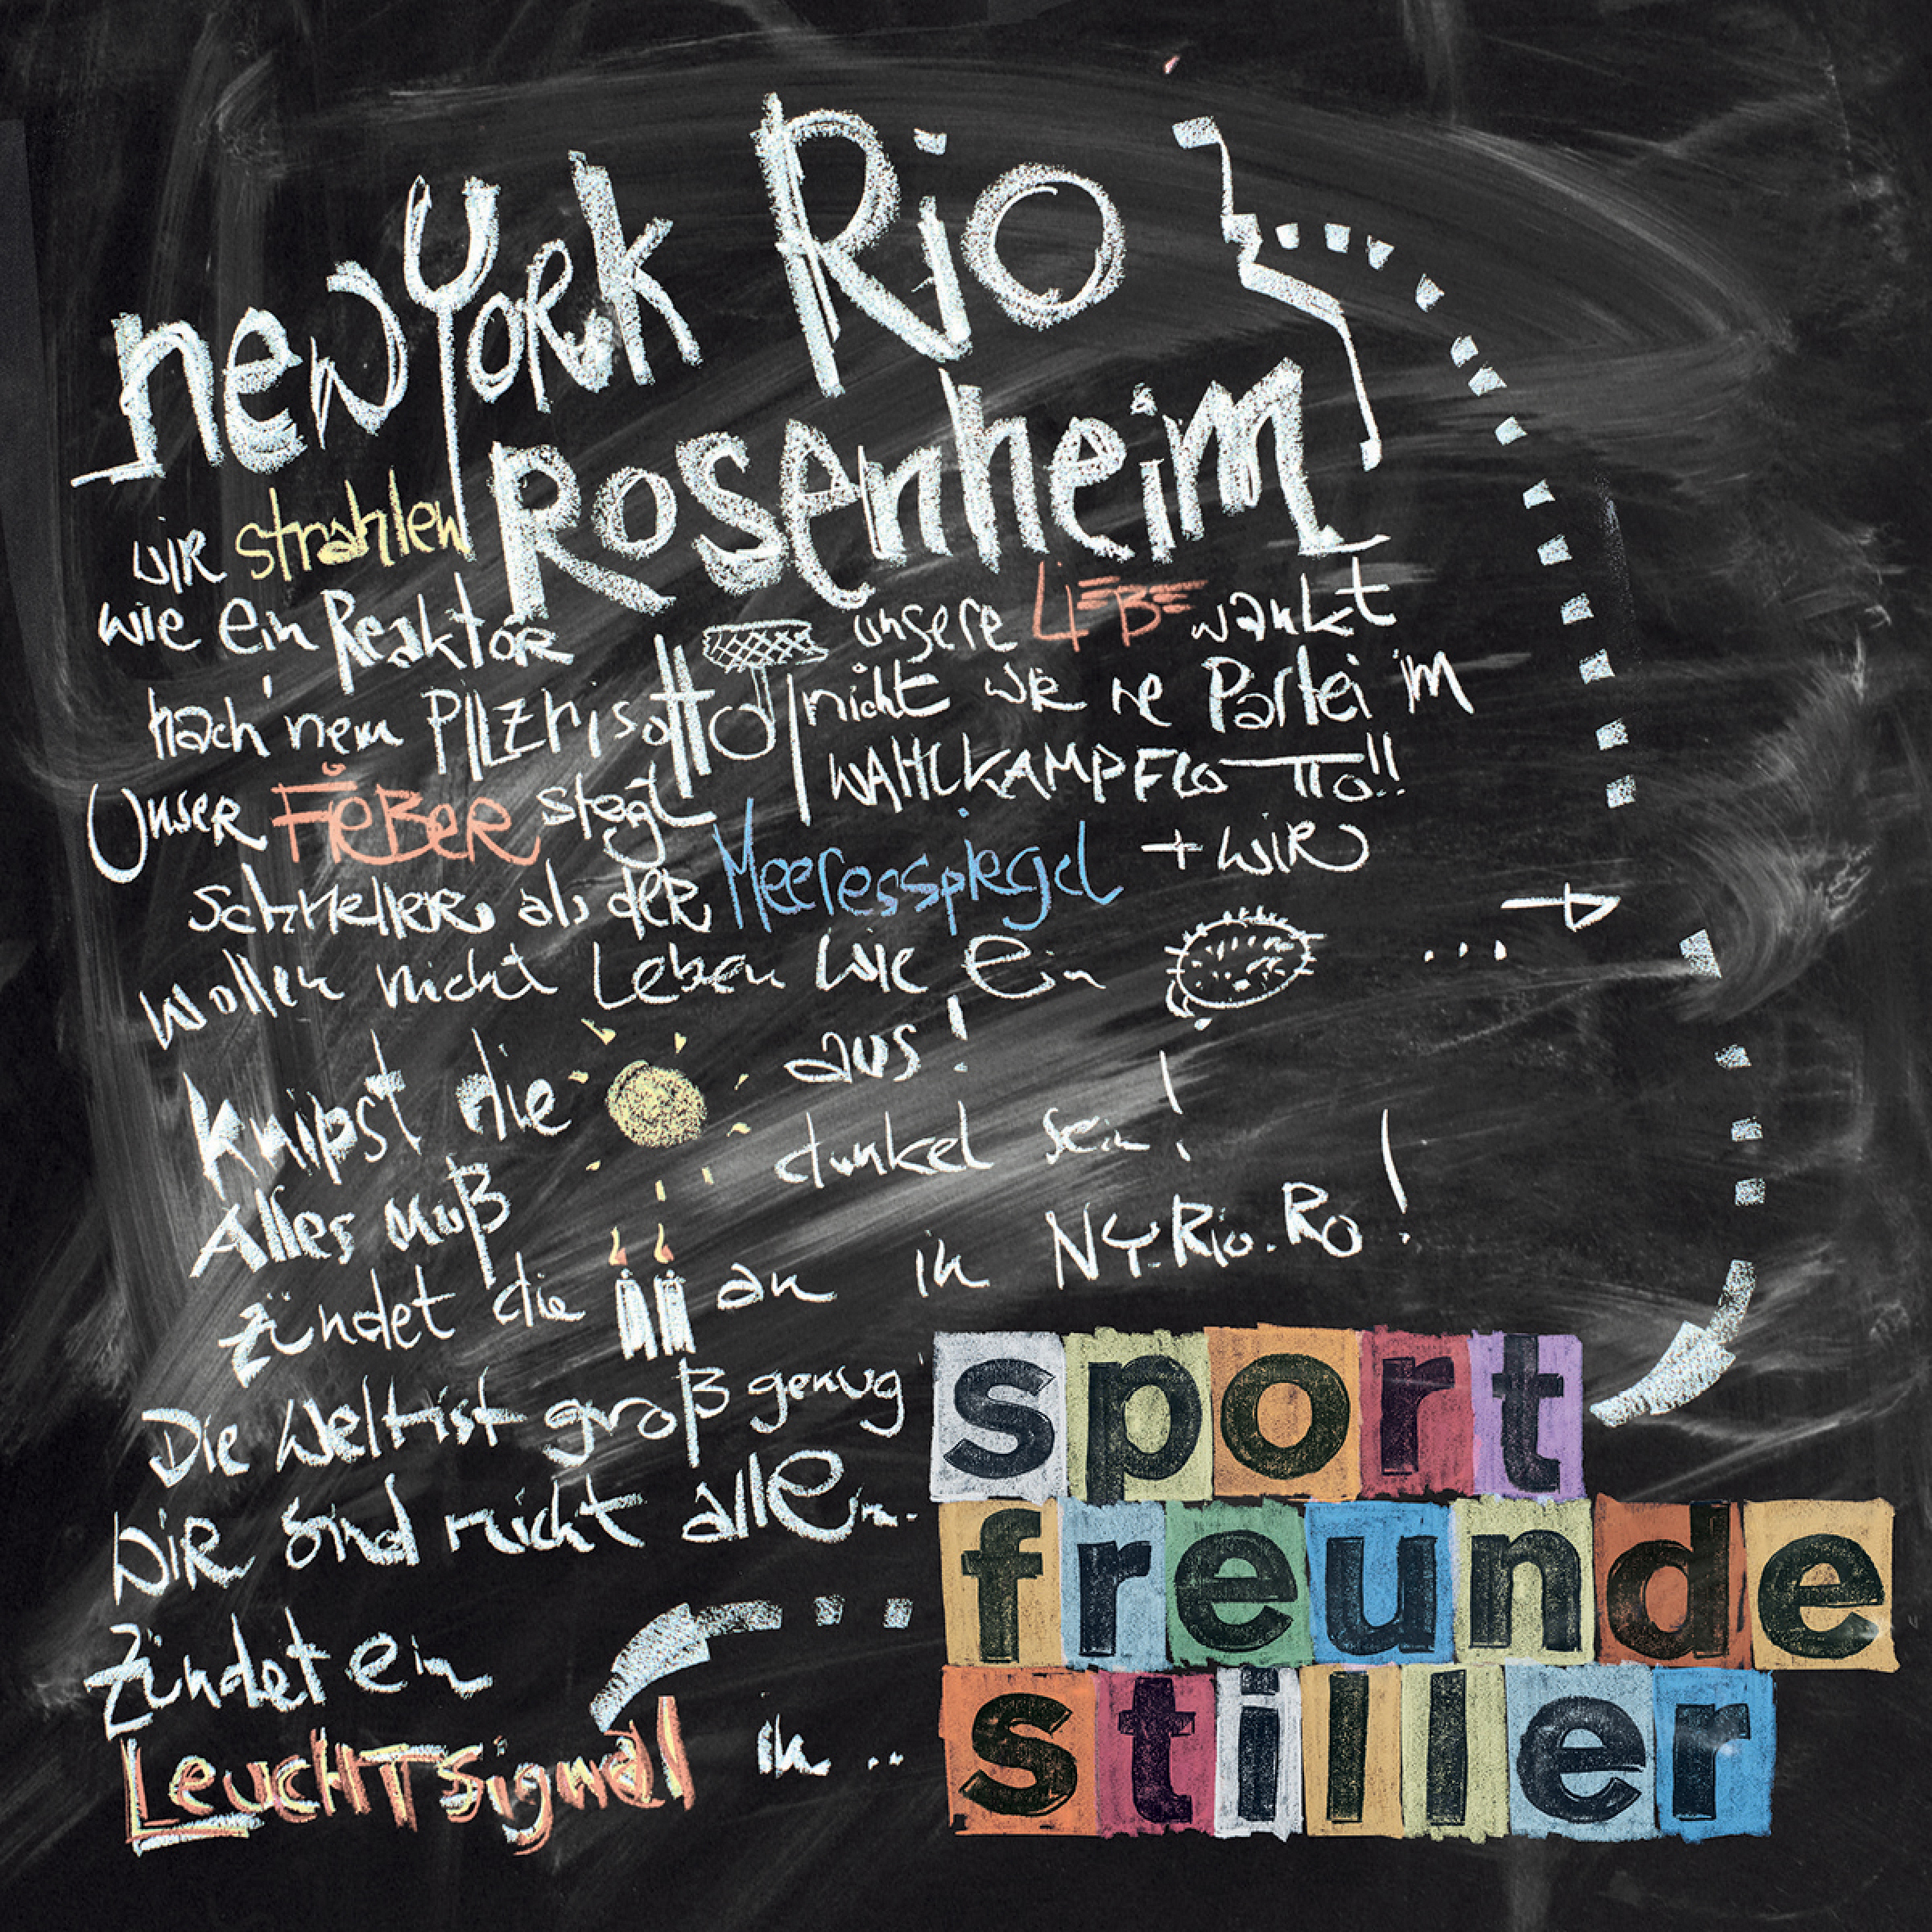 newYork Rio
Rosenheim
wir strahlen
wie ein Reaktor
nach nem PILZrisotto
unsere LIEBE wankt
nicht wie ne Partei im
WAHLKAMPFLOTTO!!
Unser FieBeR steigt
schneller als der Meeresspiegel
+ WiR
wollen nicht Leben wie ein ...
knipst die aus!
Alles muß dunkel sein!
zündet die an in NY.Rio.Ro!
Die Welt ist groß genug
WiR sind nicht allein.
zündet ein
LeuchTsignal in ..
sport
freunde
stiller